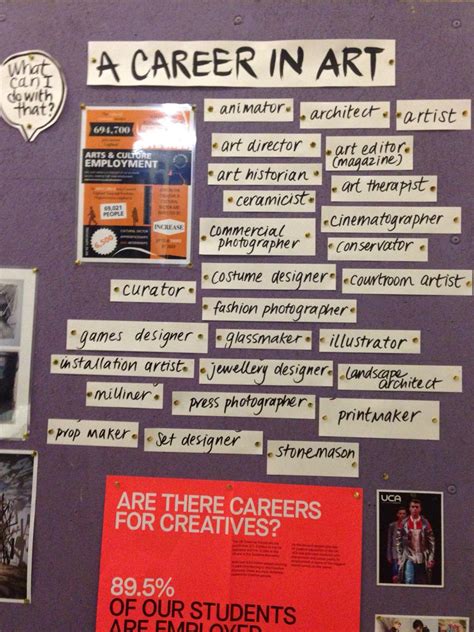 What
can I
do with
that?
A CAREER IN ART
animator
architect
artist
694,700
ARTS & CULTURE
EMPLOYMENT
69,021
PEOPLE
INCREASE
6,500
art director
art editor
(magazine)
art historian
art therapist
ceramicist
cinematographer
commercial
photographer
conservator
costume designer
courtroom artist
curator
fashion photographer
games designer
glassmaker
illustrator
installation artist
jewellery designer
landscape
architect
milliner
press photographer
printmaker
prop maker
set designer
stonemason
ARE THERE CAREERS
FOR CREATIVES?
89.5%
OF OUR STUDENTS
ARE EMPLOYED
UCA